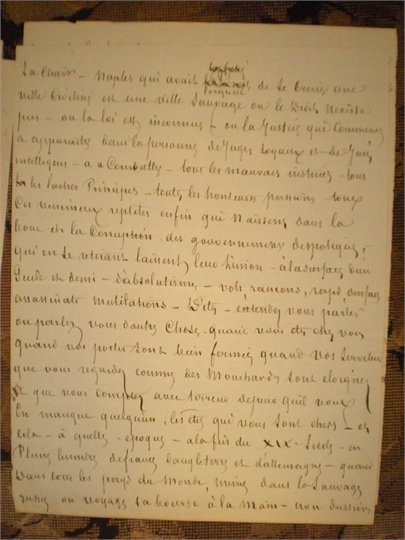 La Chair - Naples qui avait orgueil de se Croire une
ville Civilisé est une ville Sauvage ou le Droit N'existe
pas - ou la loi est inconnue - ou la Justice qui Commence
a apparaitre dans la personne de Juges Loyaux et de Jurés
intelligens - a a Combattre - tous les mauvais instincts - tous
les laches Principes - toutes les honteuses passions - tous
Ces venimeux reptiles enfin qui Naissent dans la
boue et la Corruption des gouvernemens despotiques,
Qui en se retirant laissent leur - a la surface d'un
Siecle et demi - d'absolutisme - vols, rancons, rapts,
assassinats mutilations - Dites - entendez vous parler
ou parlez vous d'autre Chose - quand vous etes chez vous
quand vos portes sont bien fermées quand vos Serviteurs
que vous regardez comme des Mouchards sont eloignes
et que vous Comptez avec terreur depuis qu'il vous
En manque quelquun, les etres qui vous sont chers - et
cela - a quelle - epoque - a la fin du XIX Siecle - en
Pleine lumiere d'Angleterre et d'allemagne - quand
Dans tous les pays du Monde, meme dans la Sauvage
russie on voyage sa bourse à la Main - non